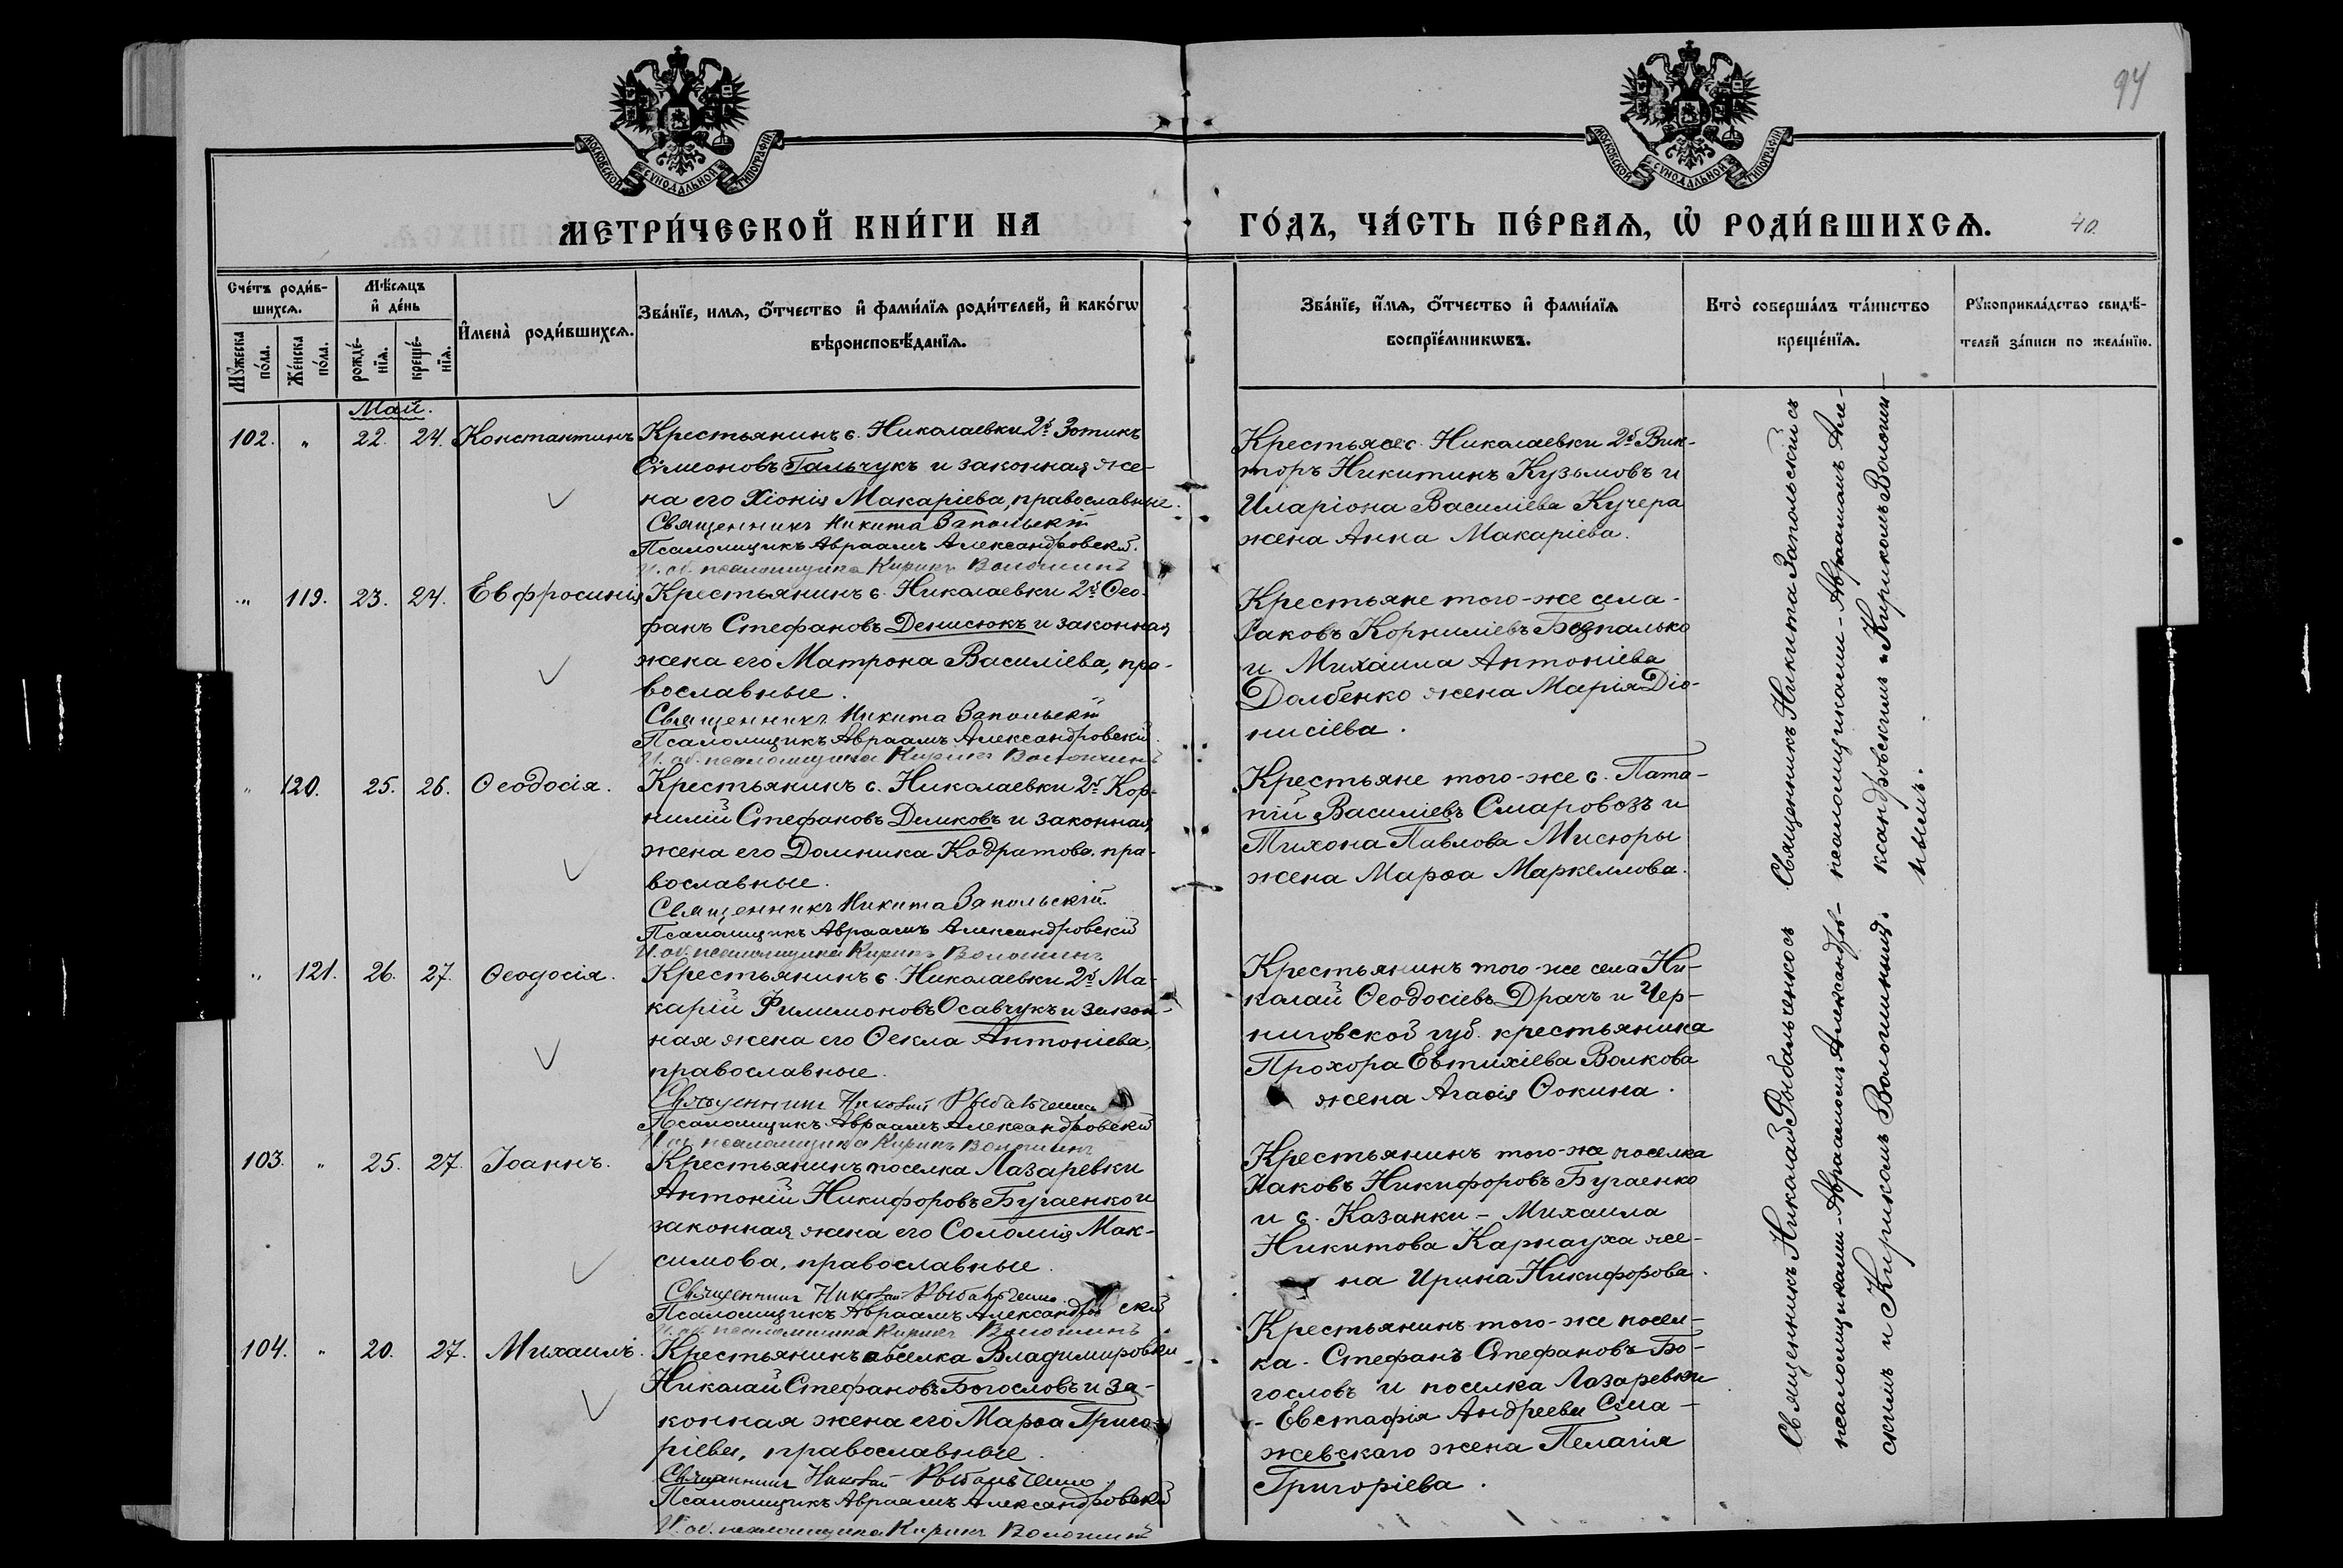 94
МОСКОВСКОЙ СѴНОДАЛЬНОЙ ТИПОГРАФІИ
МОСКОВСКОЙ СѴНОДАЛЬНОЙ ТИПОГРАФІИ
МЕТРИ́ЧЕСКОЙ КНИ́ГИ НА
ГО́ДЪ, ЧА́СТЬ ПЕ́РВАѦ, Ѡ҆ РОДИ́ВШИХСѦ.
40.
Сче́тъ роди́в-
шихсѧ.
Мꙋ́жеска по́ла.
Же́нска по́ла.
Мѣ́сѧцъ
и҆ де́нь
рожде́-
нїѧ.
креще́-
нїѧ.
И҆мена̀ роди́вшихсѧ.
Зва́нїе, имѧ, ѻ҆́тчество и҆ фами́лїѧ роди́телей, и҆ како́гѡ
вѣроисповѣ́данїѧ.
Зва́нїе, и҆́мѧ, ѻ҆́тчество и҆ фами́лїѧ
воспрїе́мникѡвъ.
Кто̀ соверша́лъ та́инство
креще́нїѧ.
Рꙋкоприкла́дство свидѣ́-
телей за́писи по жела́нїю.
Май.
102. " 22. 24. Константинъ
Крестьянинъ с. Николаевки 2й Зотикъ
Симеоновъ Гальчукъ и законная же-
на его Хіонія Макаріева, православные.
Священникъ Никита Запольскій
Псаломщикъ Авраамъ Александровскій.
И. об. псаломщика Кирикъ Волошинъ
Крестьяне с. Николаевки 2й Вик-
торъ Никитинъ Кузьмовъ и
Иларіона Василіева Кучера
жена Анна Макаріева.
" 119. 23. 24. Евфросинія
Крестьянинъ с. Николаевки 2й Ѳео-
фанъ Стефановъ Денисюкъ и законная
жена его Матрона Василіева, пра-
вославные.
Священникъ Никита Запольскій
Псаломщикъ Авраамъ Александровскій
И. об. псаломщика Кирикъ Волошинъ
Крестьяне того-же села-
Іаковъ Корниліевъ Безпалько
и Михаила Антоніева
Долбенко жена Марія Діо-
нисіева.
" 120. 25. 26. Ѳеодосія.
Крестьянинъ с. Николаевки 2й Кор-
нилій Стефановъ Демковъ и законная
жена его Домника Кодратова, пра-
вославные.
Священникъ Никита Запольскій
Псаломщикъ Авраамъ Александровскій
И. об. псаломщика Кирикъ Волошинъ
Крестьяне того-же с. Пата-
пій Василіевъ Смаровозъ и
Тихона Павлова Мисюры
жена Марѳа Маркеллова.
" 121. 26. 27. Ѳеодосія.
Крестьянинъ с. Николаевки 2й Ма-
карій Филимоновъ Осавчукъ и закон-
ная жена его Ѳекла Антоніева,
православные.
Священникъ Николай Рыбальченко
Псаломщикъ Авраамъ Александровскій
И. об. псаломщика Кирикъ Волошинъ
Крестьянинъ того-же села Ни-
колай Ѳеодосіевъ Драчъ и Чер-
ниговской губ. крестьянина
Прохора Евтихіева Волкова
жена Агаѳія Ѳокина.
103. " 25. 27. Іоаннъ.
Крестьянинъ поселка Лазаревки
Антоній Никифоровъ Бугаенко и
законная жена его Соломія Мак-
симова, православные.
Священникъ Николай Рыбальченко
Псаломщикъ Авраамъ Александровскій
И. об. псаломщика Кирикъ Волошинъ
Крестьянинъ того-же поселка
Іаковъ Никифоровъ Бугаенко
и с. Казанки - Михаила
Никитова Карнауха же-
на Ирина Никифорова.
104. " 20. 27. Михаилъ.
Крестьянинъ поселка Владимировки
Николай Стефановъ Богословъ и за-
конная жена его Марѳа Григо-
ріева, православные.
Священникъ Николай Рыбальченко
Псаломщикъ Авраамъ Александровскій
И. об. псаломщика Кирикъ Волошинъ
Крестьянинъ того-же посел-
ка - Стефанъ Стефановъ Бо-
гословъ и поселка Лазаревки
- Евстафія Андреева Сма-
жевскаго жена Пелагія
Григоріева.
Священникъ Никита Запольскій съ
псаломщиками - Авраамомъ Але-
ксандровскимъ и Кирикомъ Волоши
нымъ.
Священникъ Николай Рыбальченко съ
псаломщиками - Авраамомъ Александров-
скимъ и Кирикомъ Волошинымъ.